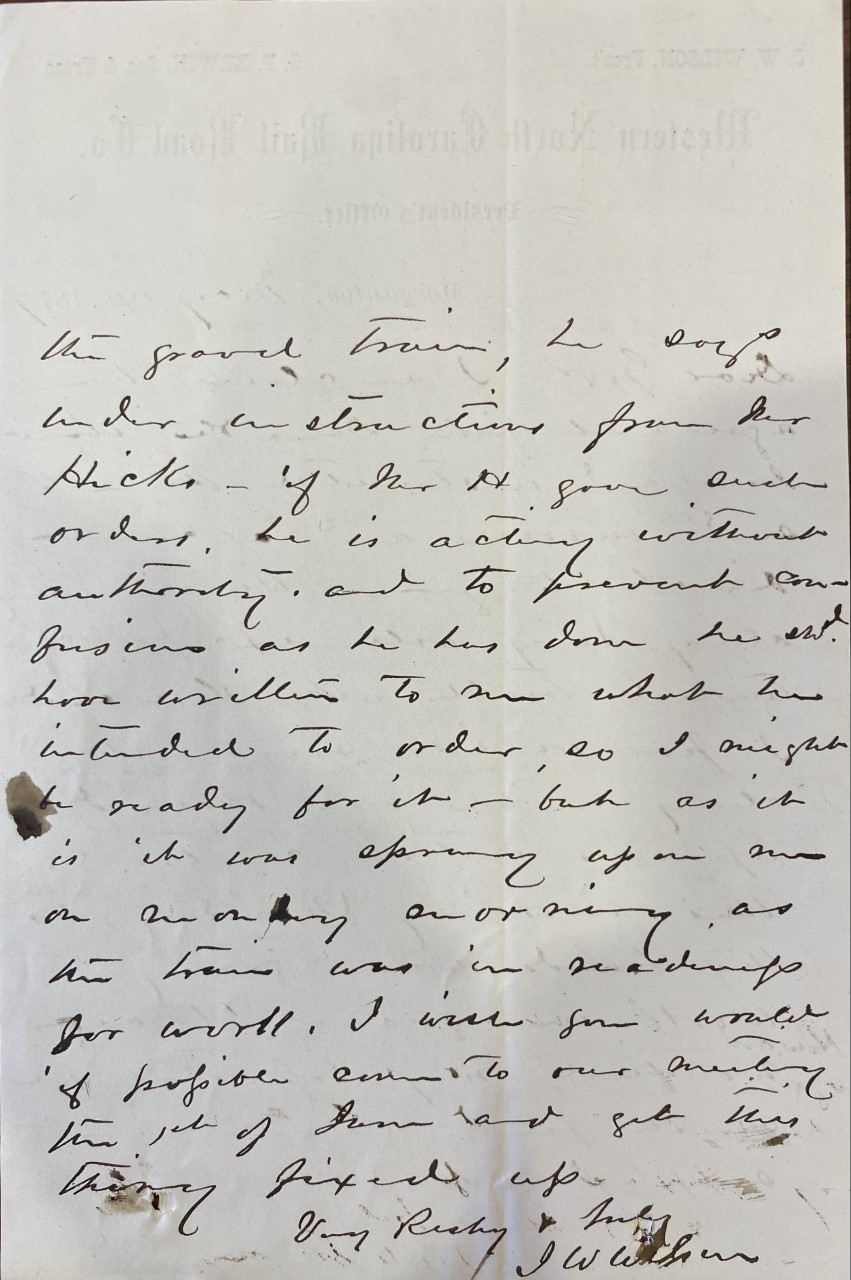 the gravel train, he says
under instructions from Mr
Hicks - if Mr H gave such
orders, he is acting without
authority. and to prevent con-
fusion as he has done he shd.
have written to me what he
intended to order, so I might
be ready for it - but as it
is it was sprung upon me
on monday morning as
the train was in readiness
for work. I wish you would
if possible come to our meeting
the 1st of June and get this
thing fixed up
Very Respy & truly
J W Wilson